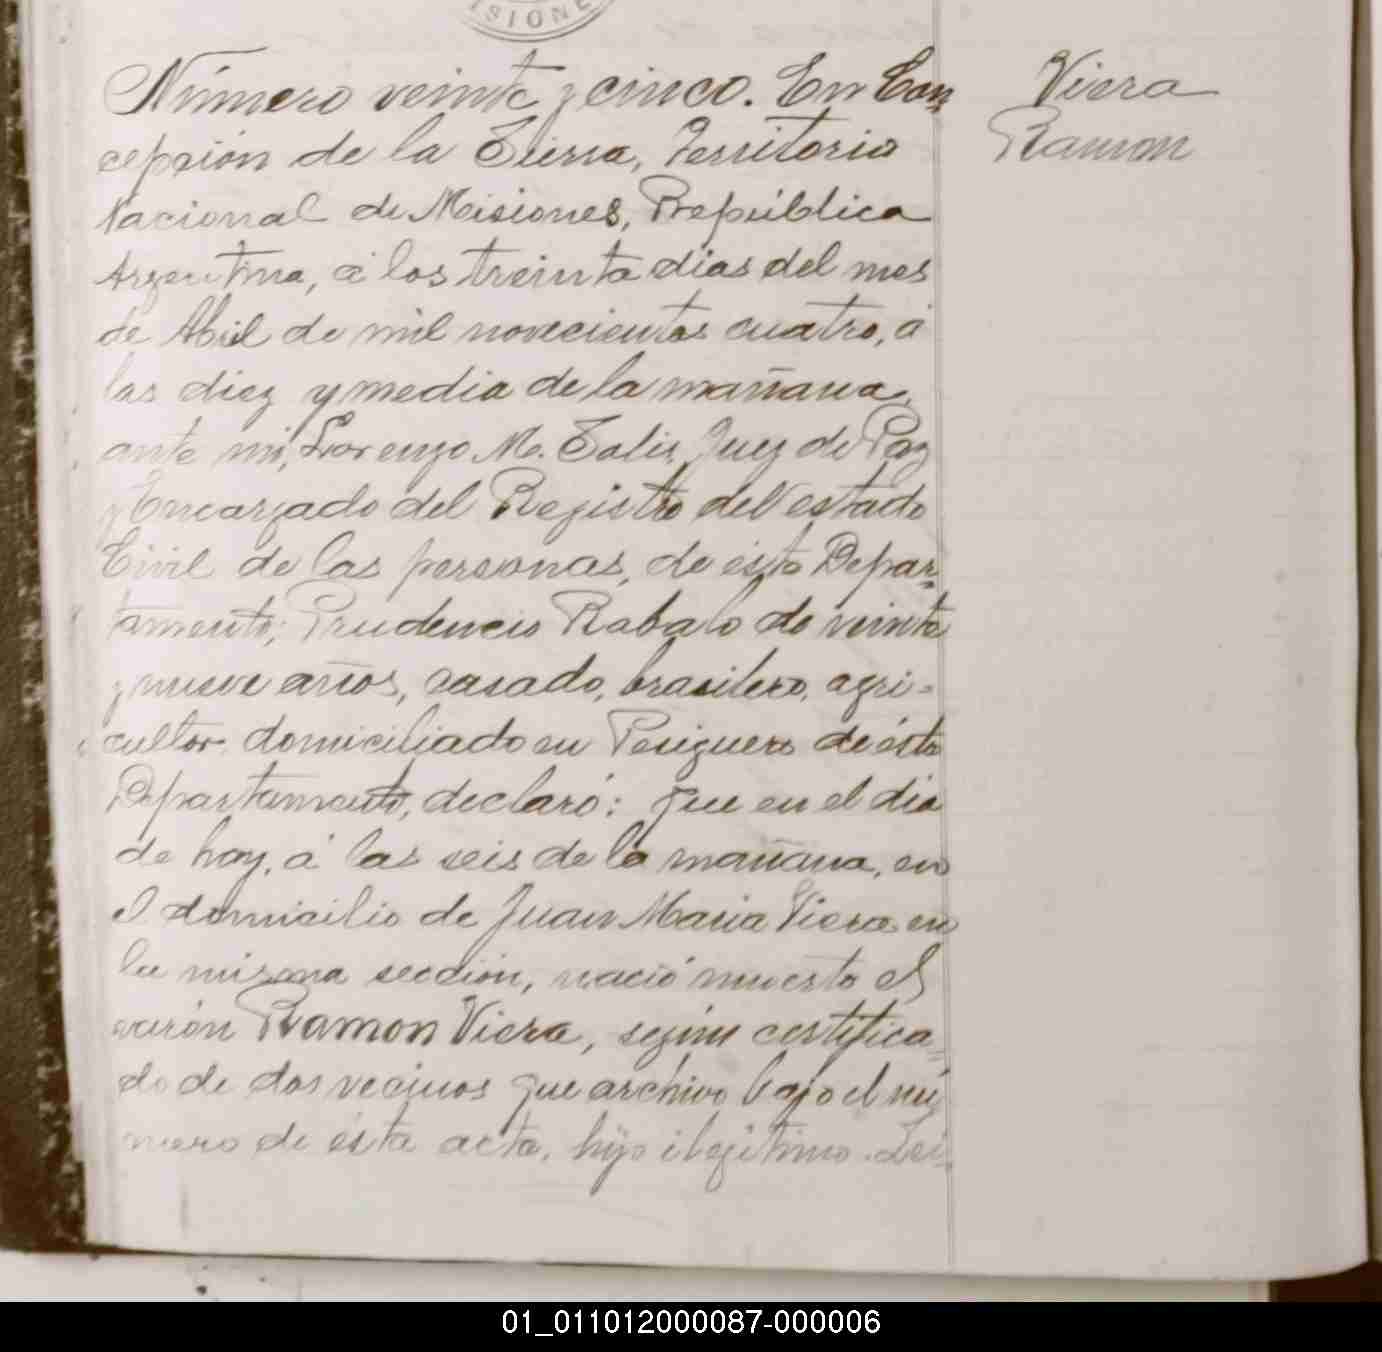 ISIONE
Número veinte y cinco. En Con-
cepción de la Sierra, Territorio
Nacional de Misiones, República
Argentina, á los treinta dias del mes
de Abril de mil novecientos cuatro, á
las diez y media de la mañana,
ante mi, Lorenzo M. Solis, Juez de Paz
y Encargado del Registro del estado
Civil de las personas, de éste Depar-
tamento; Prudencio Rabalo de veinte
y nueve años, casado, brasilero, agri-
cultor domiciliado en Persiguero de éste
Departamento, declaró: que en el dia
de hoy, á las seis de la mañana, en
el domicilio de Juan Maria Viera en
la misma sección, nació muerto el
varón Ramon Viera, según certifica-
do de dos vecinos que archivo bajo el nú
mero de ésta acta, hijo ilegitimo. Lei-
Viera
Ramon
01_011012000087-000006